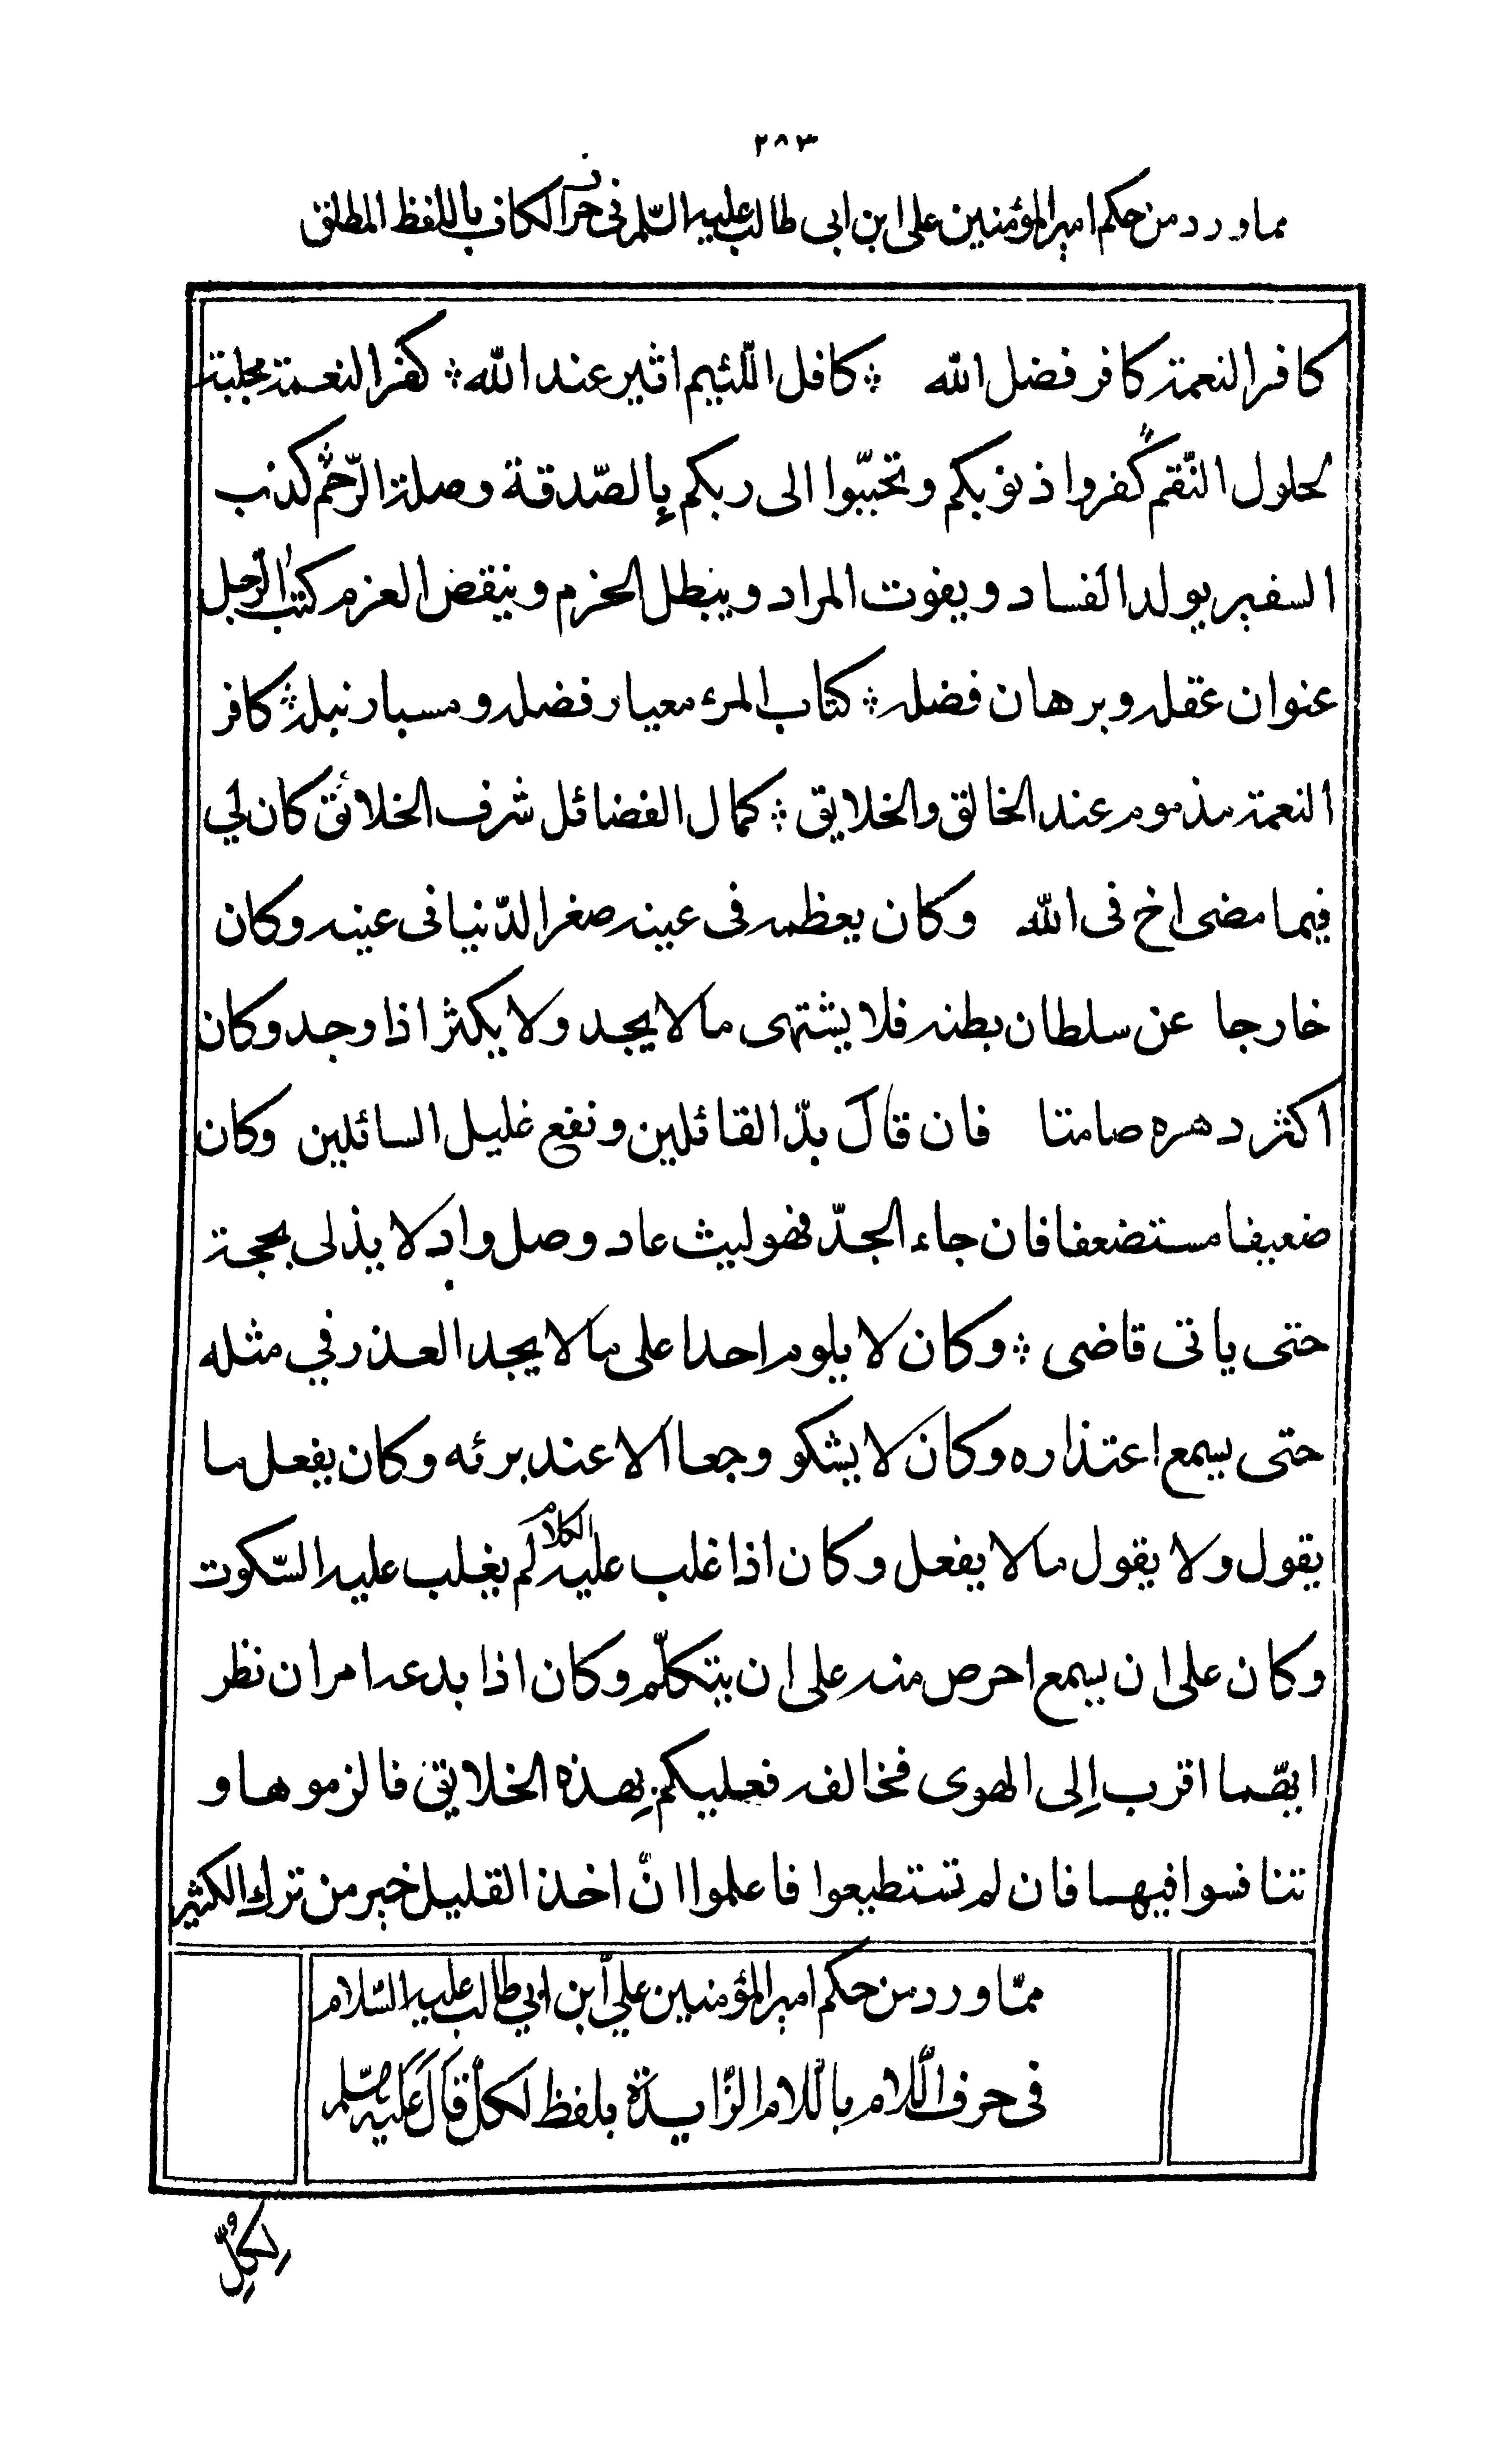 ٢٨٣
مما ورد من حكم امير المؤمنين على ابن ابى طالب عليه السّلم فى حرف الكاف باللفظ المطلق
كافر النعمة كافر فضل الله ؞ كافل اللّئيم اثير عند الله ؞ كفر النعمة مجلبة
لحلول النّقم ؞ كفروا ذنوبكم وتحببّوا الى ربكم بالصّدقة وصلة الرّحم ؞ كذب
السفير يولد الفساد ويفوت المراد ويبطل الحزم وينقض العزم كتب الرّجل
عنوان عقله وبرهان فضله ؞ كتاب المرء معيار فضله ومسبار نبله ؞ كافر
النعمة مذموم عند الخالق والخلايق ؞ كمال الفضائل شرف الخلائق كان لي
فيما مضى اخ فى الله وكان يعظمه فى عينه صغر الدّنيا فى عينه وكان
خارجا عن سلطان بطنه فلا يشتهى ما لا يجد ولا يكثر اذا وجد وكان
اكثر دهره صامتا فان قال بذّ القائلين ونفع غليل السائلين وكان
ضعيفا مستضعفا فان جاء الجدّ فهو ليث عاد وصل واد لا يذلى بحجة
حتى ياتى قاضى ؞ وكان لا يلوم احدا على ما لا يجد العذر في مثله
حتى يسمع اعتذاره وكان لا يشكو وجعا الا عند برئه وكان يفعل ما
يقول ولا يقول ما لا يفعل وكان اذا غلب عليه الكلام لم يغلب عليه السّكوت
وكان على ان يسمع احرص منه على ان يتكلّم وكان اذا بدعه امران نظر
ايهّما اقرب إلى الهوى فخالفه فعليكم بهذه الخلايق فالزموها و
تنافسوا فيها فان لم تستطيعوا فاعلموا انّ اخذ القليل خير من ترك الكثير
ممّا ورد من حكم امير المؤمنين علي ابن ابي طالب عليه السّلام
فى حرف اللّام باللّام الزّايدة بلفظ لكل قال عليه
لِكُلِّ